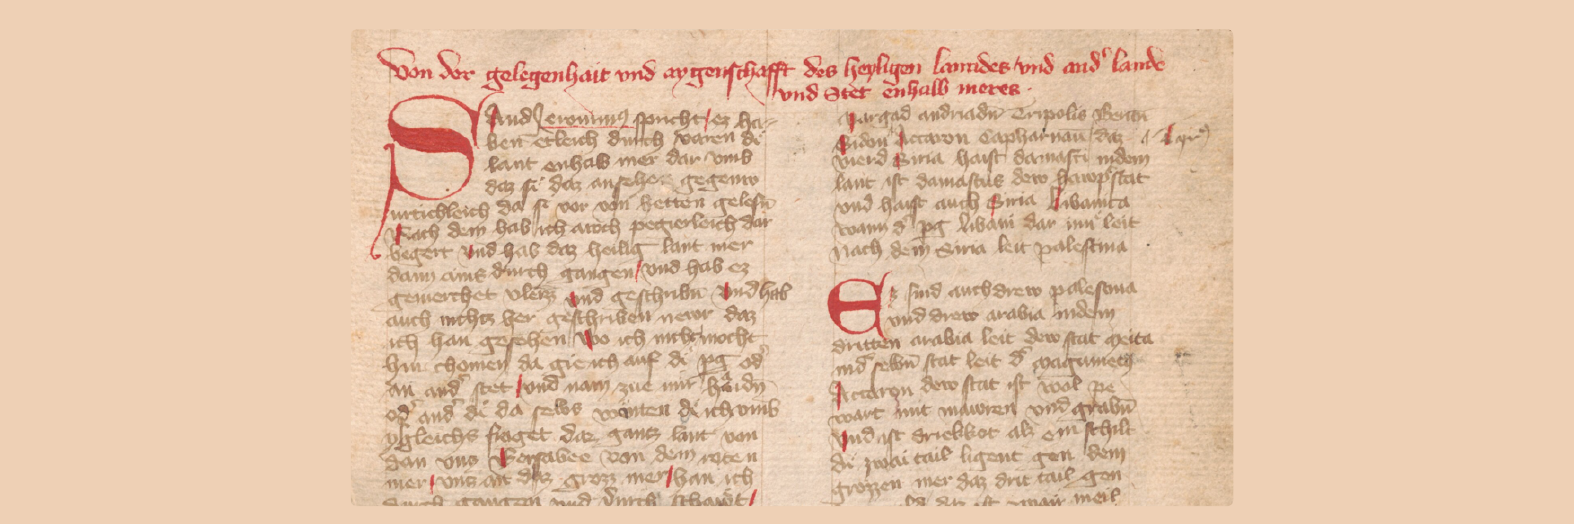 Von der gelegenhait und aygenschafft des heyligen lanndes und and' lande
und Stet enhalb meres
Sand Jeronim9 spricht ez ha
ben etleich durch varen di
lant enhalb mer dar umb
daz si daz ansehen gegenw
urtichleich da si vor von hetten gelesn
Nach dem hab ich auch pegierleich dar
begert und hab daz heilig lant mer
dann ains durch gangen und hab ez
gemerchet vleizz und geschribn und hab
auch nichtz her geschriben newr daz
ich han gesehen wo ich nicht mocht
hin chomen da gie ich auf di pg od'
an and' stet und nam zue mir haidn
od' and' di da selbs wonten di ich umb
ygleichs fraget daz gantz lant von
dan uns Bersabee von dem roten
mer uns an daz grozz mer han ich
durch gangen und durch schawt
Sargad andriadn Tripolis Berith
Sidon Accaron Capharnau daz
vierd Siria haist damasci in dem
lant ist damascus dew hawpstat
und haist auch Siria Libanica
wann d' pg libani dar inn leit
nach dem Siria leit palestina
Ez sind auch drew palestina
und drew arabia in dem
dritten arabia leit dew stat
in d' selbn stat leit d' machmeth
Accaron dew stat ist wol pe
wart mit mawren und grabn
und ist driekkot als ein schilt
di zwai tail ligent gen dem
grozzen mer daz drit tail gen